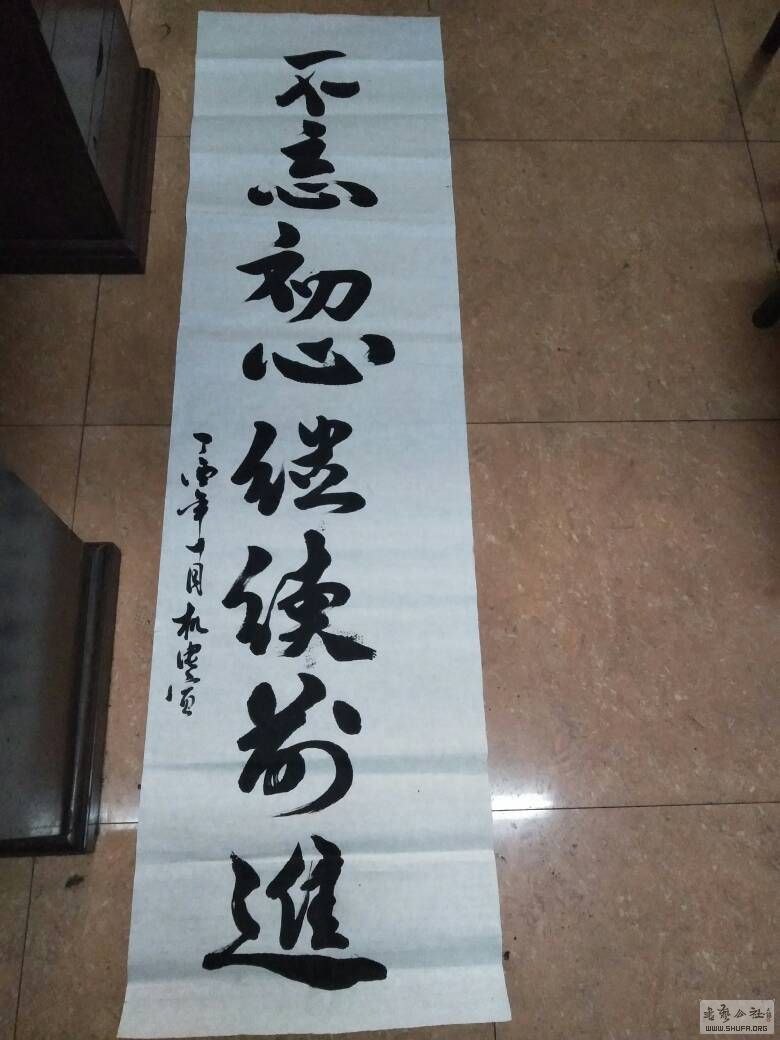 不忘初心继续前進
丁酉年十月
书艺公社
WWW.SHUFA.ORG